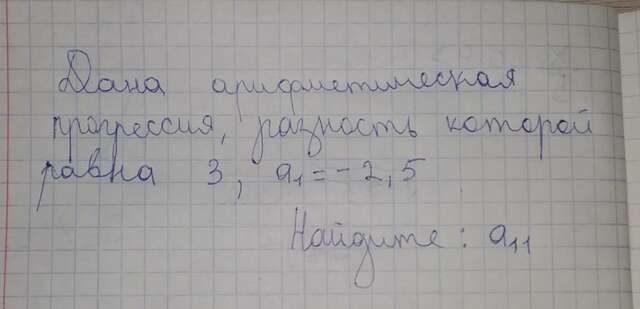 Дана арифметическая
прогрессия, разность которой
равна 3, a₁ = -2,5
Найдите: a₁₁